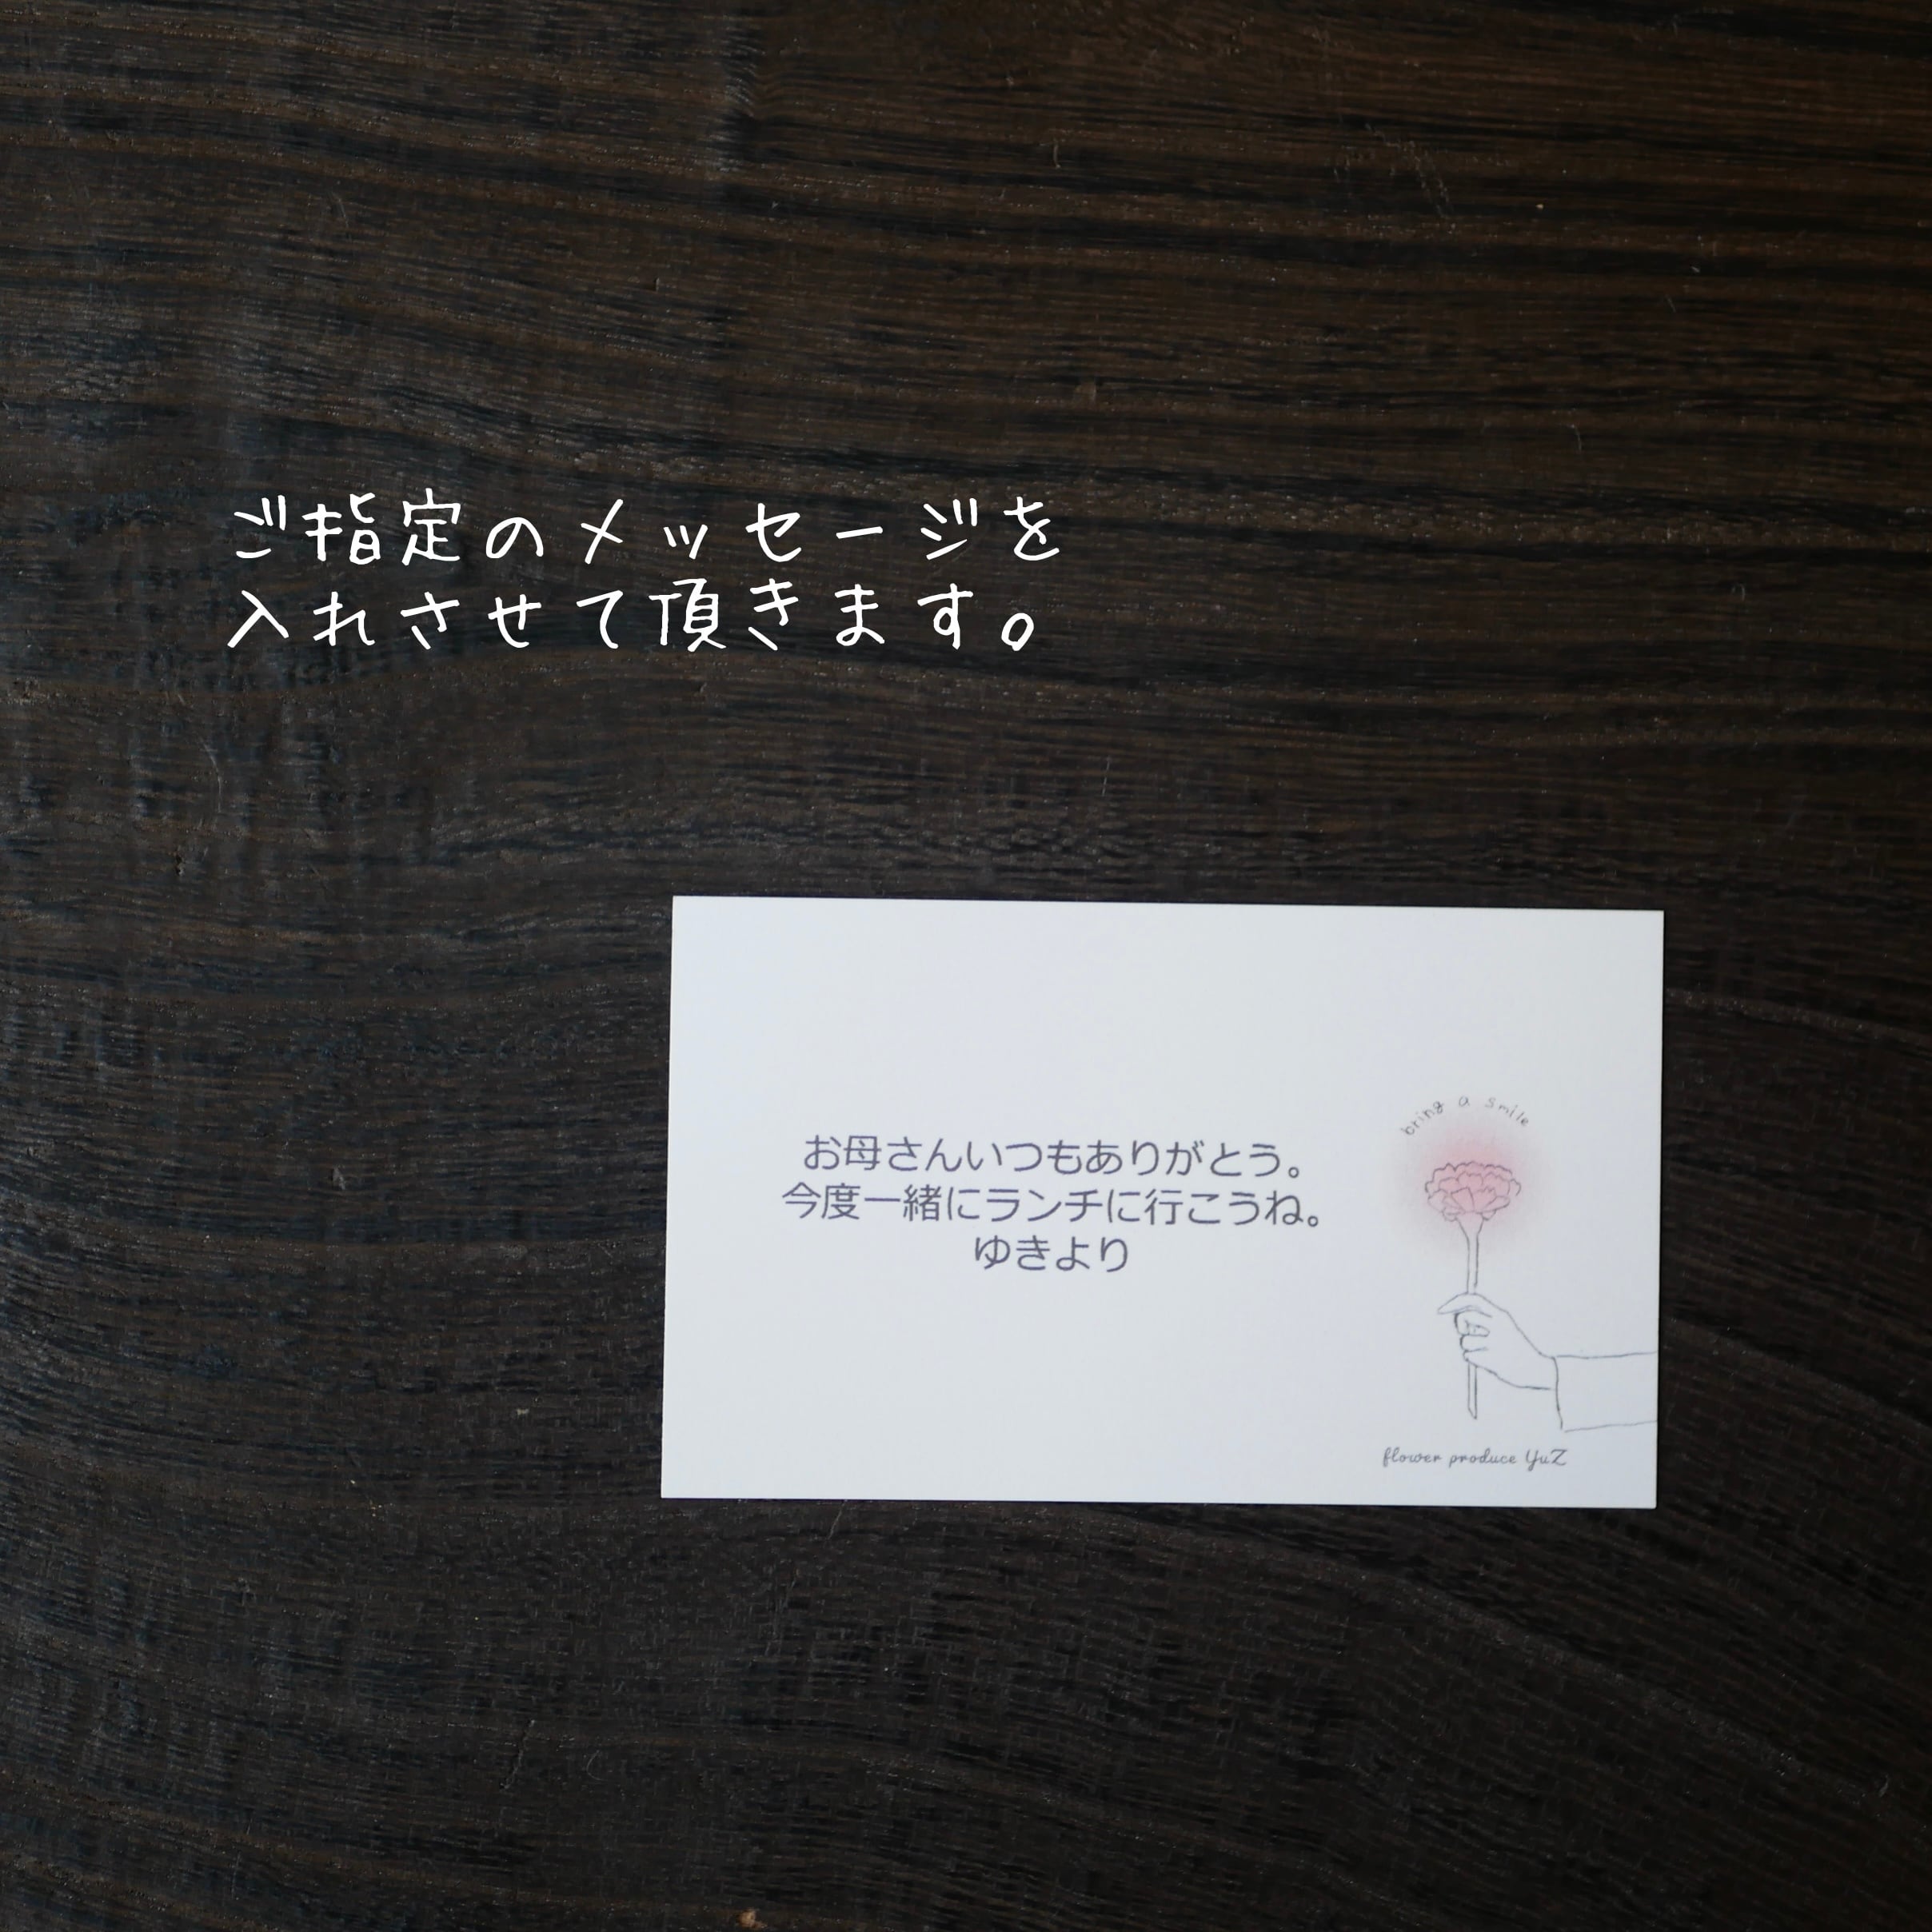 ご指定のメッセージを
入れさせて頂きます。
bring a smile
お母さんいつもありがとう。
今度一緒にランチに行こうね。
ゆきより
flower produce YuZ